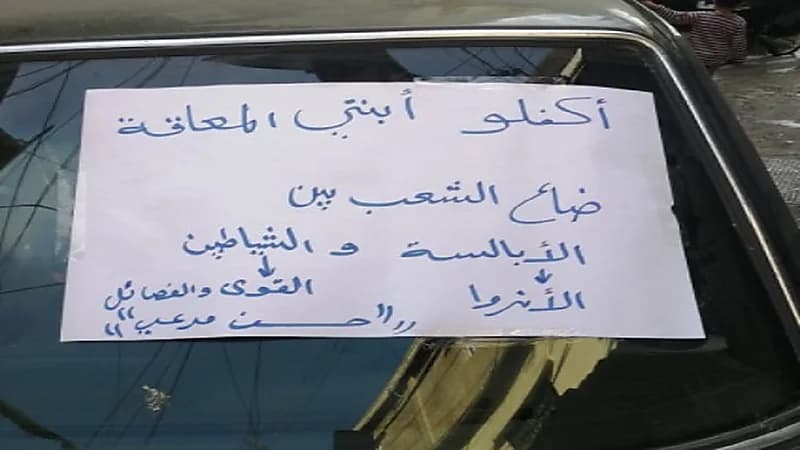 أكفلو أبنتي المعاقة
ضاع الشعب بين
الأبالسة و الشياطين
↓ ↓
الأنروا القوى والفصائل
"حسن مدعب"